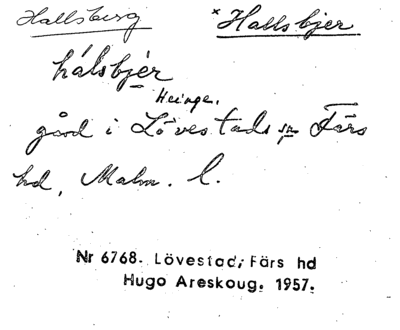 Hallsberg × Hallsbjer
hálsbjér
Heinge.
gård i Lövestads sn Färs
hd, Malm. l.
Nr 6768. Lövestad, Färs hd
Hugo Areskoug. 1957.